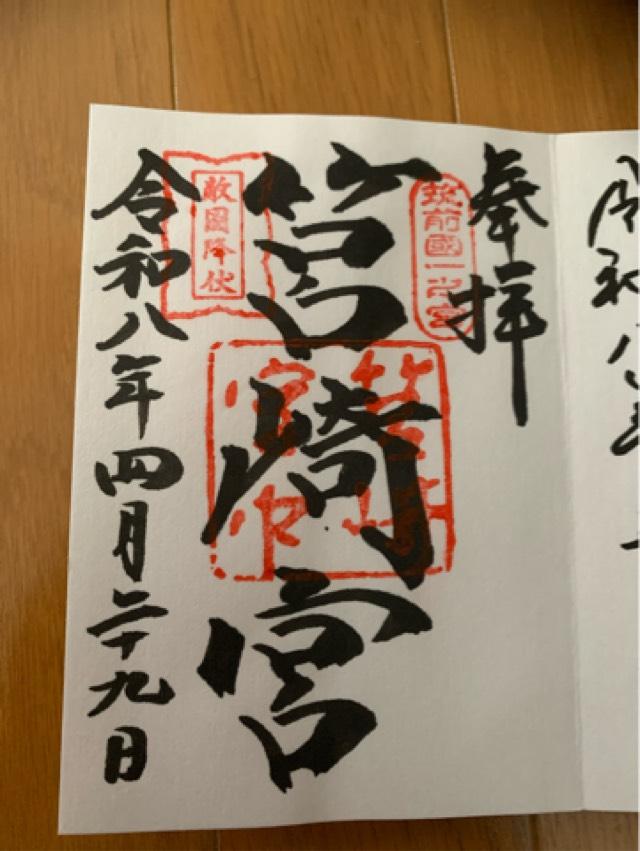 奉拝
筑前國一之宮
筥崎宮
筥崎宮印
敵国降伏
令和八年四月二十九日